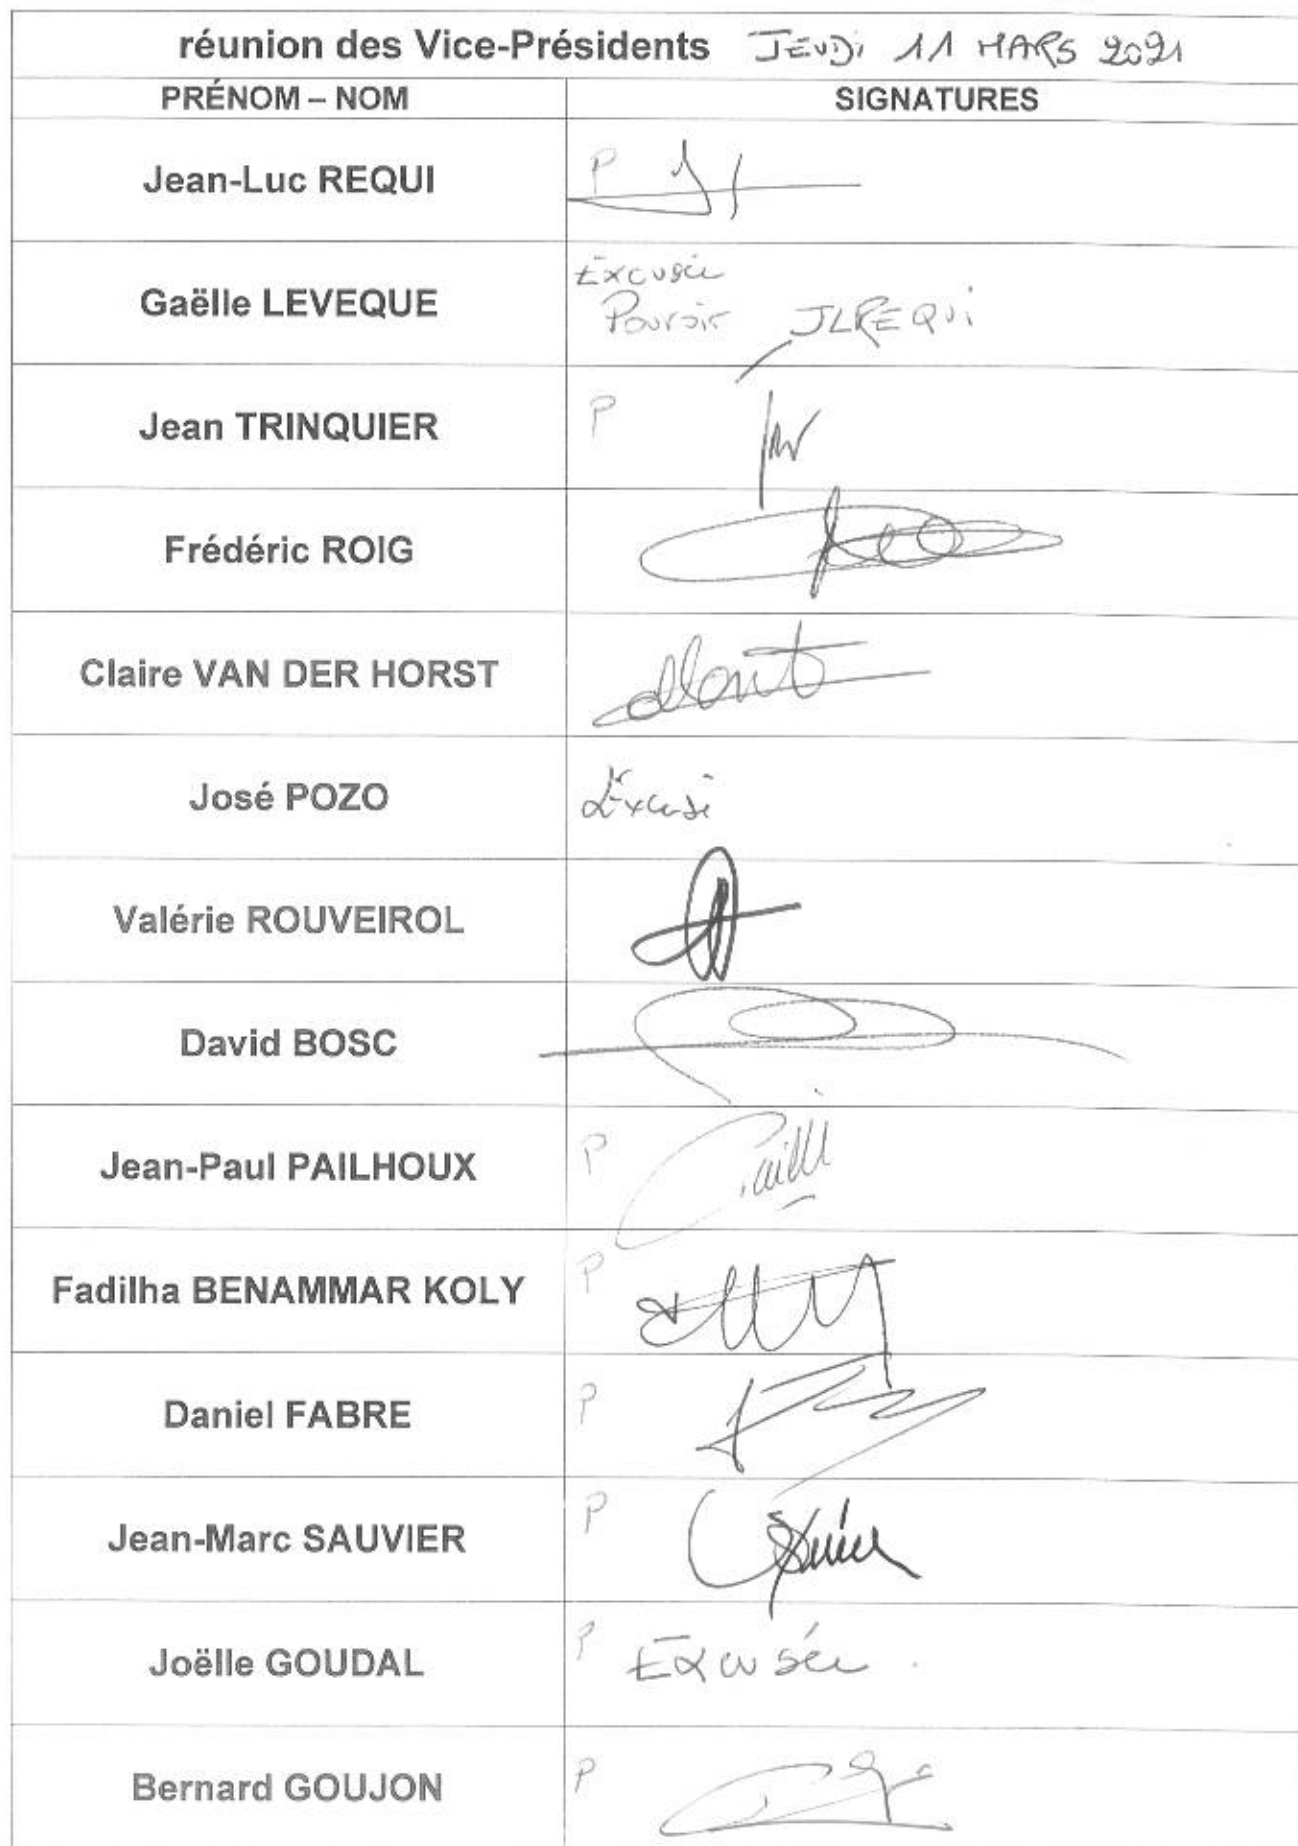 réunion des Vice-Présidents JEUDi 11 MARS 2021
PRÉNOM – NOM SIGNATURES
Jean-Luc REQUI P
Excusée
Gaëlle LEVEQUE Pouvoir JLREQUi
Jean TRINQUIER P
Frédéric ROIG
Claire VAN DER HORST
José POZO Excusé
Valérie ROUVEIROL
David BOSC
Jean-Paul PAILHOUX P
Fadilha BENAMMAR KOLY P
Daniel FABRE P
Jean-Marc SAUVIER P
Joëlle GOUDAL P Excusée.
Bernard GOUJON P